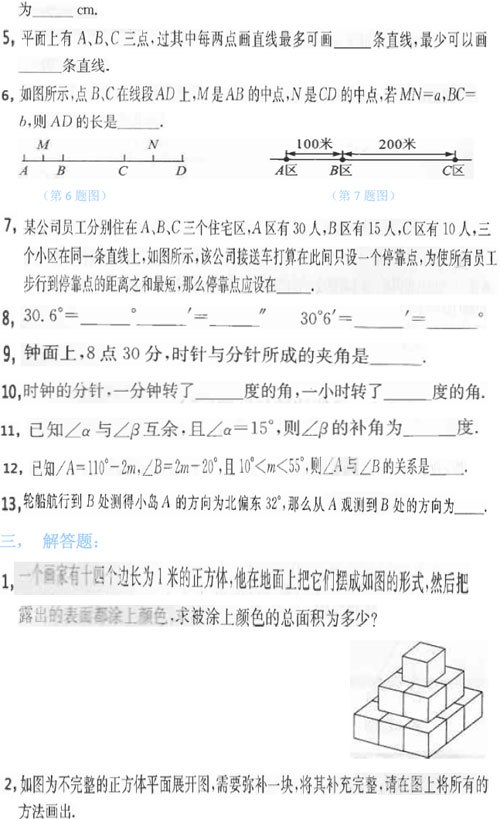 为______cm.
5, 平面上有 A、B、C 三点,过其中每两点画直线最多可画_____条直线,最少可以画
______条直线.
6, 如图所示,点 B、C 在线段 AD 上,M 是 AB 的中点,N 是 CD 的中点,若 MN=a,BC=
b,则 AD 的长是______.
M N
A B C D
100米 200米
A区 B区 C区
(第 6 题图) (第 7 题图)
7, 某公司员工分别住在 A、B、C 三个住宅区,A 区有 30 人,B 区有 15 人,C 区有 10 人,三
个小区在同一条直线上,如图所示,该公司接送车打算在此间只设一个停靠点,为使所有员工
步行到停靠点的距离之和最短,那么停靠点应设在_____.
8, 30.6°=______°______′=______″ 30°6′=______′=______°
9, 钟面上,8 点 30 分,时针与分针所成的夹角是______.
10,时钟的分针,一分钟转了_____度的角,一小时转了_____度的角.
11, 已知∠α 与∠β 互余,且∠α=15°,则∠β 的补角为_____度.
12, 已知∠A=110°-2m,∠B=2m-20°,且 10°<m<55°,则∠A 与∠B 的关系是____.
13,轮船航行到 B 处测得小岛 A 的方向为北偏东 32°,那么从 A 观测到 B 处的方向为____.
三, 解答题:
1, 一个画家有十四个边长为 1 米的正方体,他在地面上把它们摆成如图的形式,然后把
露出的表面都涂上颜色,求被涂上颜色的总面积为多少?
2,如图为不完整的正方体平面展开图,需要弥补一块,将其补充完整,请在图上将所有的
方法画出.